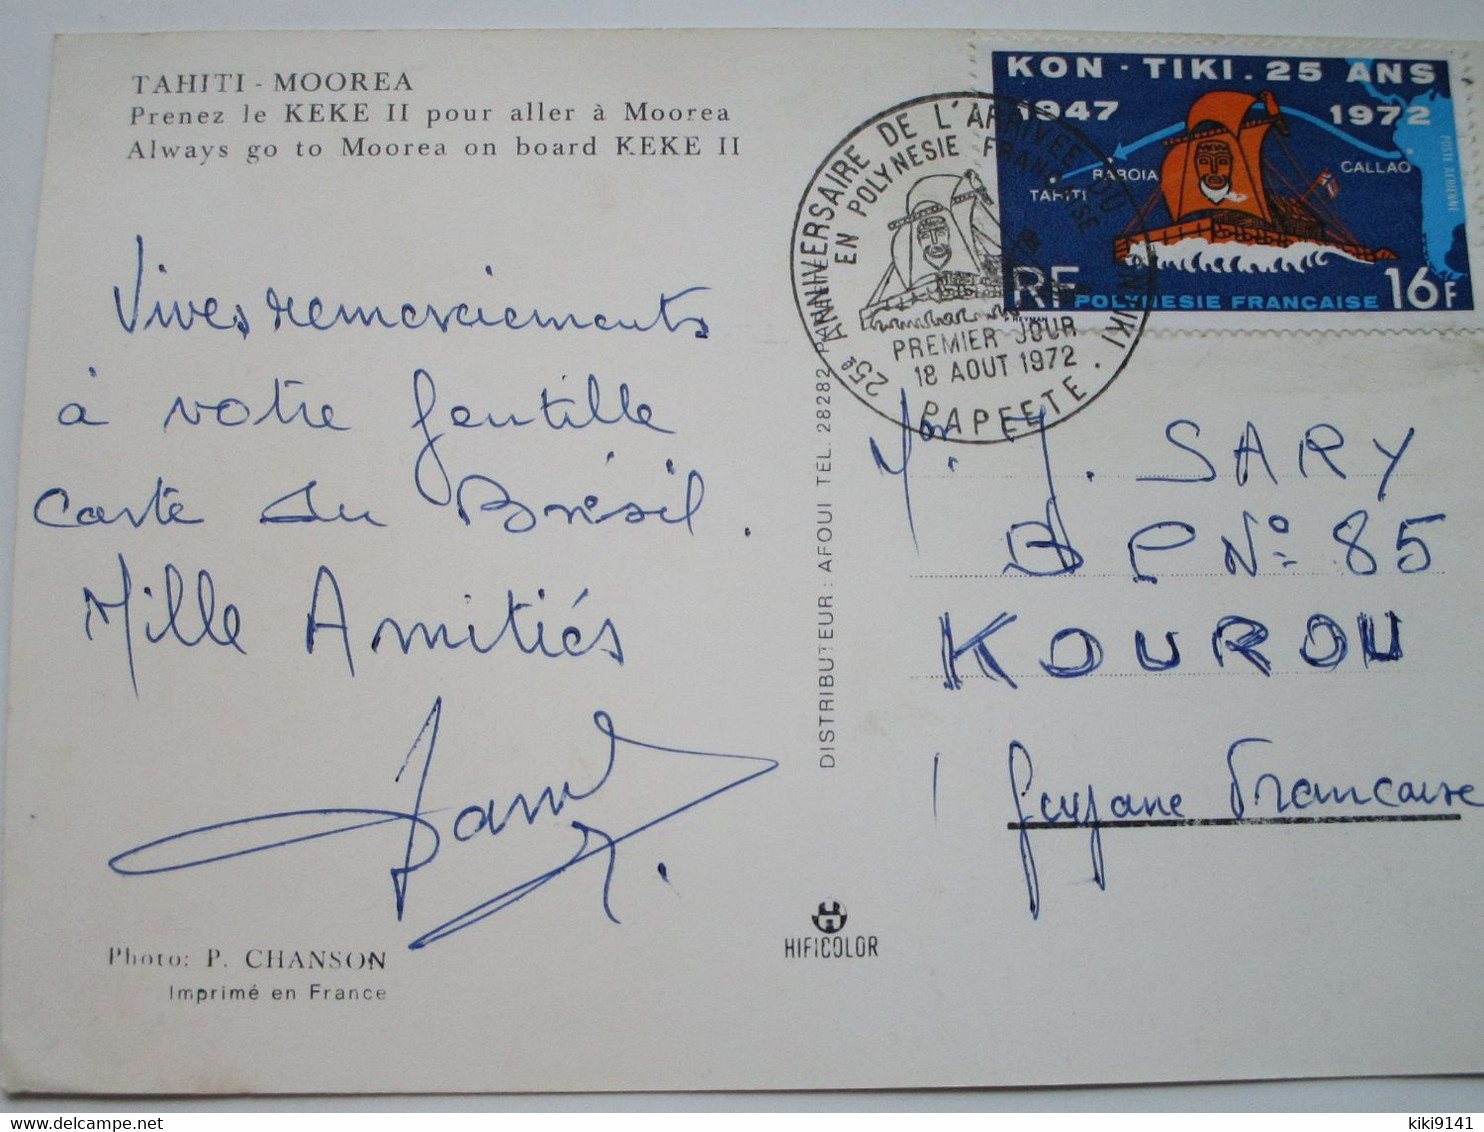 TAHITI - MOOREA
Prenez le KEKE II pour aller à Moorea
Always go to Moorea on board KEKE II
Vives remerciements
à votre gentille
carte du Brésil.
Mille Amitiés
Photo: P. CHANSON
Imprimé en France
DISTRIBUTEUR : AFOUI TEL. 28282
HIFICOLOR
KON - TIKI . 25 ANS
1947 1972
TAHITI
RAROIA
CALLAO
POSTE AERIENNE
RF POLYNESIE FRANÇAISE 16F
25e ANNIVERSAIRE DE L'ARRIVEE DU KON TIKI
EN POLYNESIE FRANCAISE
PREMIER JOUR
18 AOUT 1972
PAPEETE
Mr. J. SARY
BP N° 85
KOUROU
Guyane Francaise
kiki9141